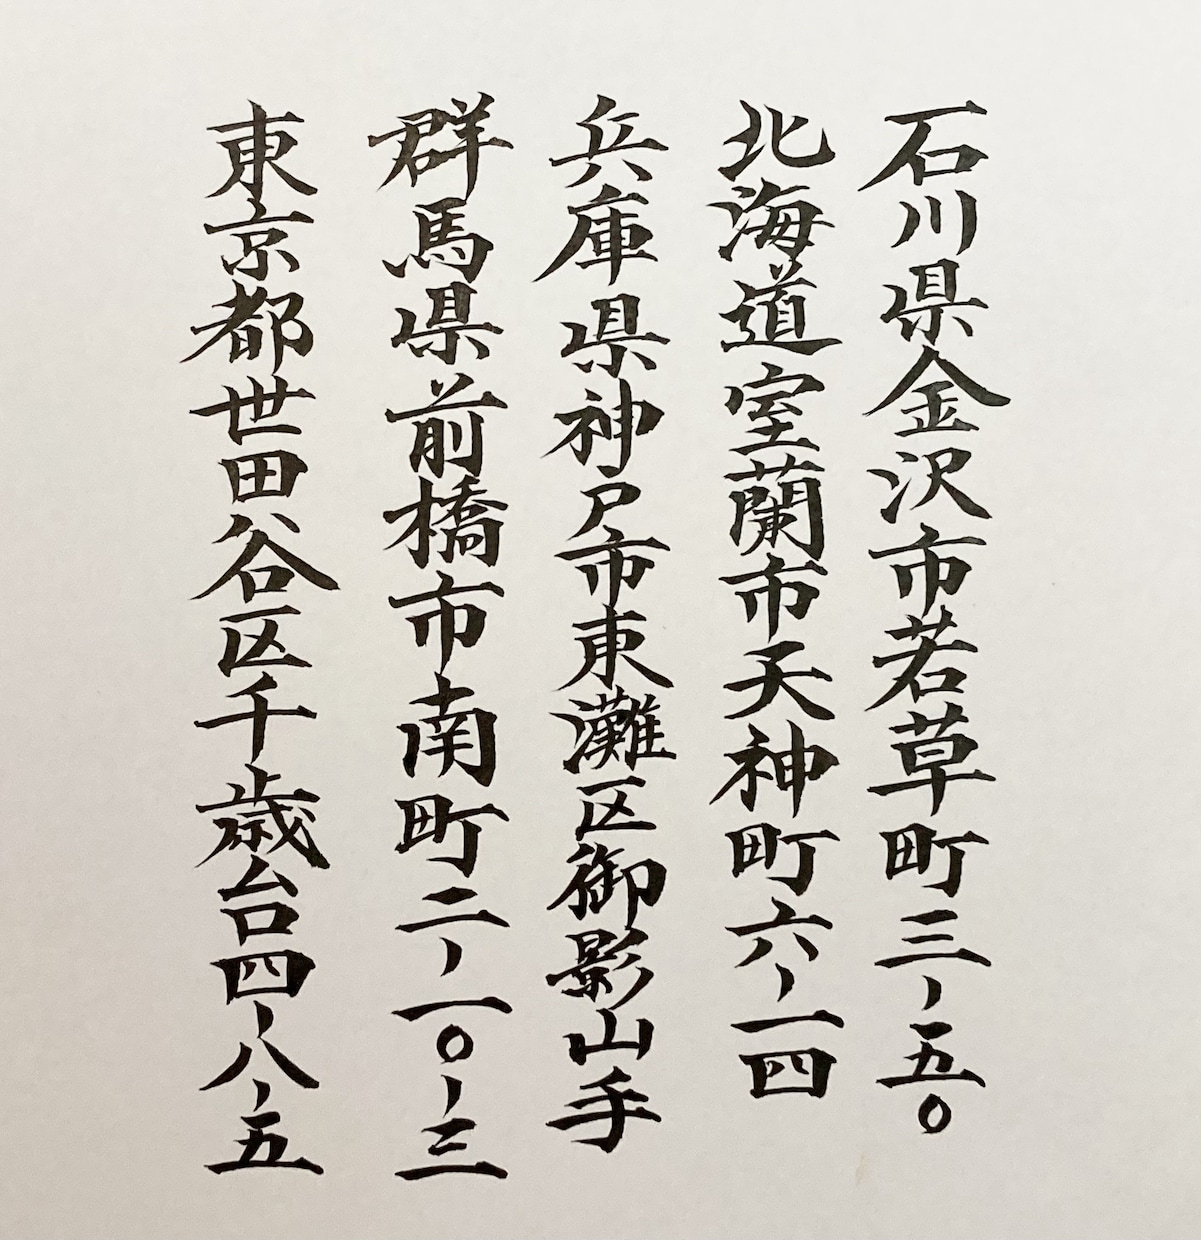 石川県金沢市若草町三ー五〇
北海道室蘭市天神町六ー一四
兵庫県神戸市東灘区御影山手
群馬県前橋市南町二ー一〇ー三
東京都世田谷区千歳台四ー八ー五